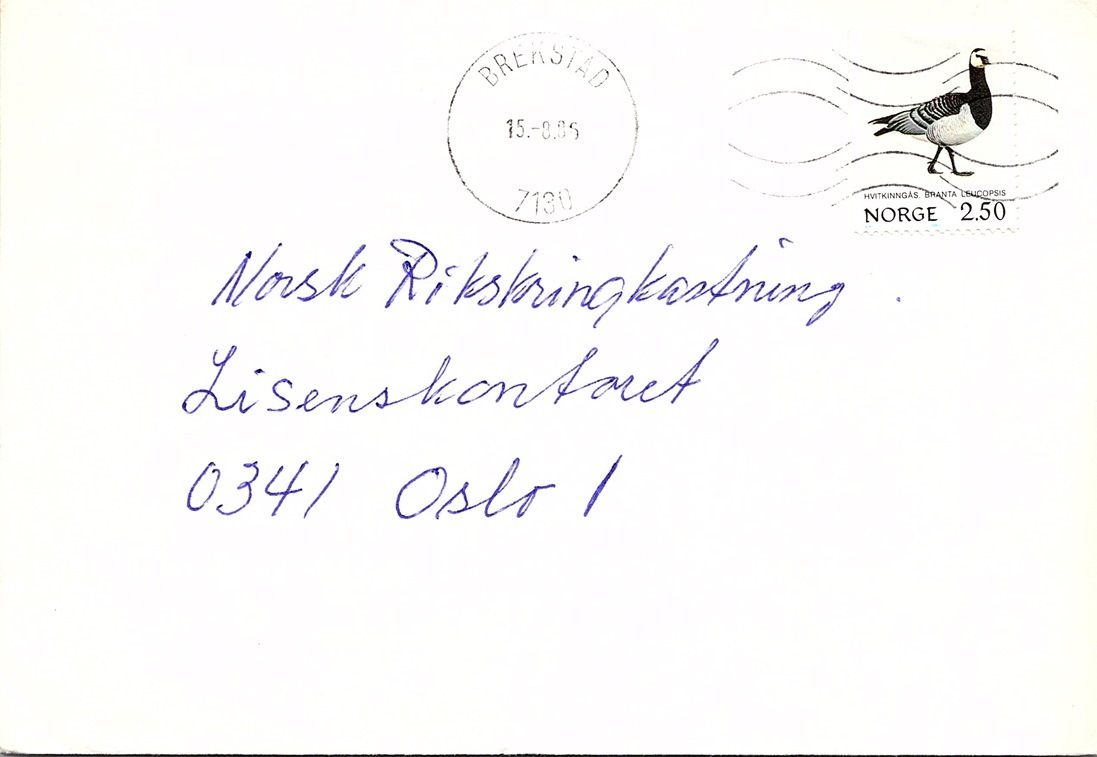 BREKSTAD
15.-8.86
7130
HVITKINNGÅS. BRANTA LEUCOPSIS
NORGE 2.50
Norsk Rikskringkastning
Lisenskontoret
0341 Oslo 1